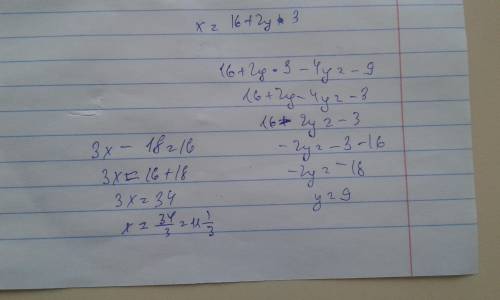 x = 16+2y · 3
16+2y · 3 - 4y = -9
16+2y - 4y = -3
16 - 2y = -3
-2y = -3 -16
-2y = -18
y = 9
3x - 18 = 16
3x = 16+18
3x = 34
x = 34/3 = 11 1/3